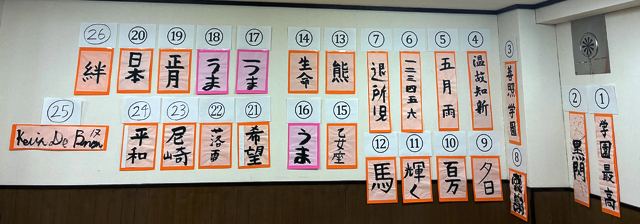 ①
学園最高
②
黒門
③
善照学園
④
温故知新
⑤
五月雨
⑥
一二三四五六
⑦
退所児
⑧
感謝
⑨
夕日
⑩
百万
⑪
輝く
⑫
馬
⑬
熊
⑭
生命
⑮
乙女座
⑯
うま
⑰
うま
⑱
うま
⑲
正月
⑳
日本
㉑
希望
㉒
落雷
㉓
尼崎
㉔
平和
㉕
Kevin De Bruyne 17
㉖
絆